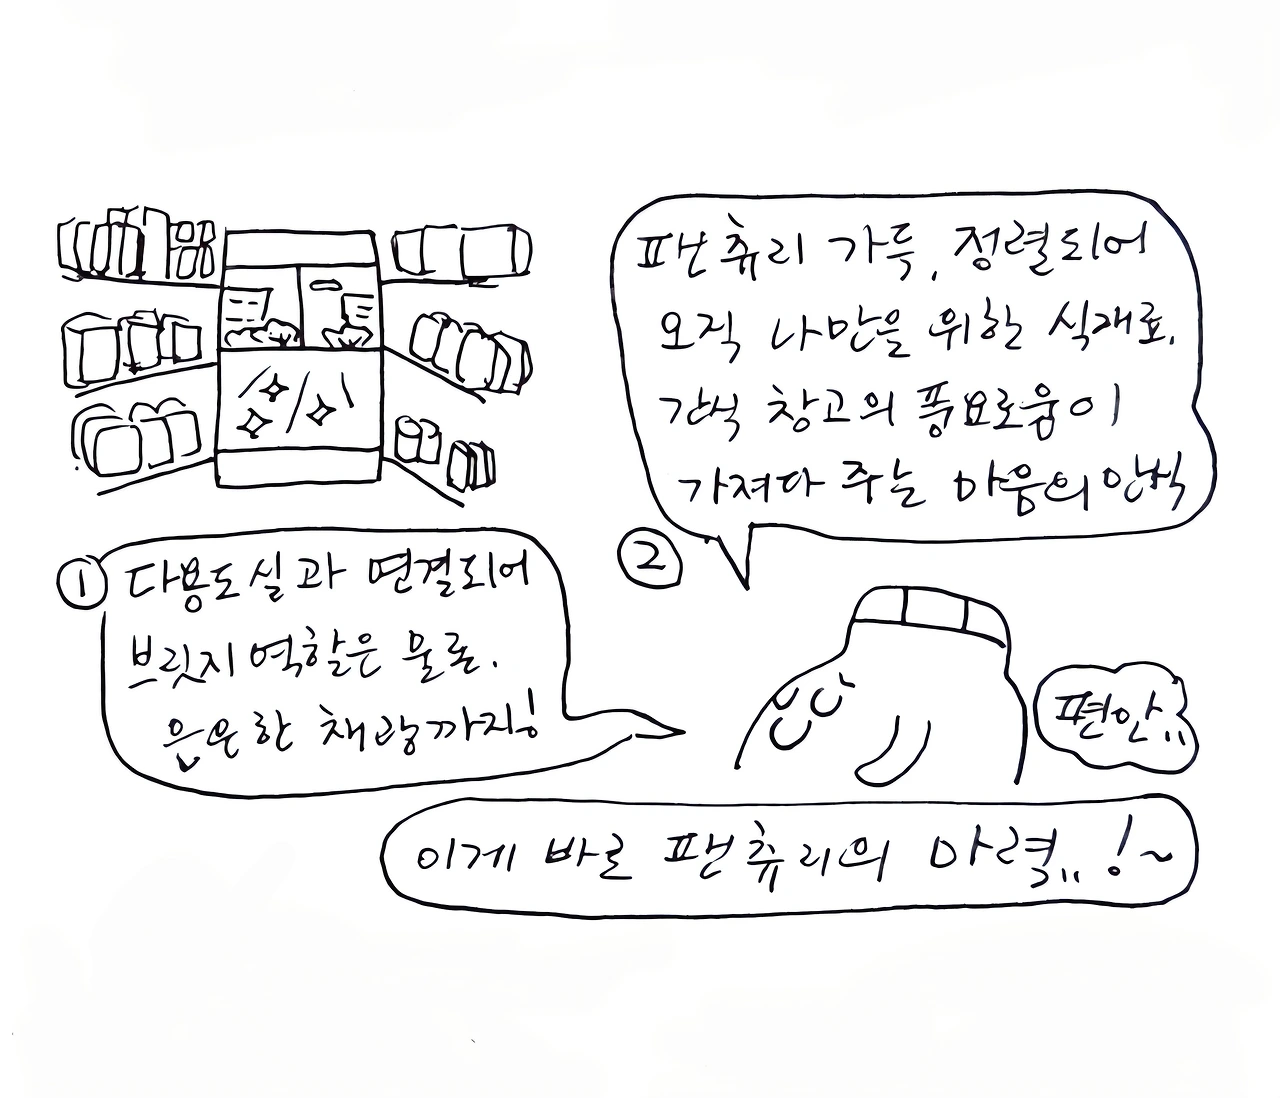 ①
다용도실과 연결되어
브릿지 역할은 물론.
은은한 채광까지!
②
팬츄리 가득, 정렬되어
오직 나만을 위한 식재료.
간식 창고의 풍요로움이
가져다 주는 마음의 안식
편안..
이게 바로 팬츄리의 마력..!~